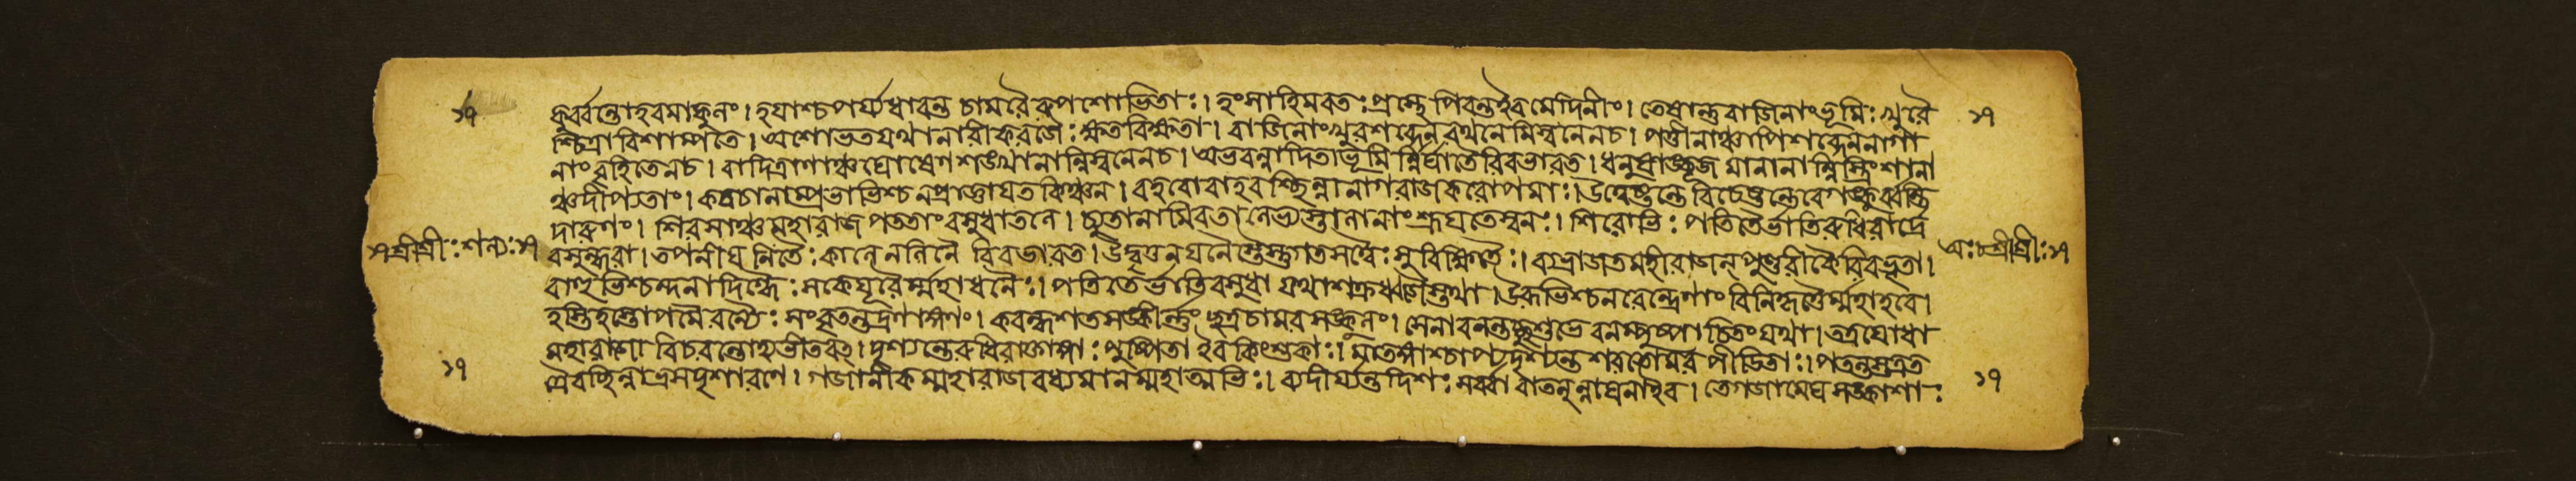 ১৭
কুর্ব্বন্তোহবমাকুলং। হযাশ্চ পর্য্যধাবন্ত চামরৈরুপশোভিতাঃ। হংসাহিমবতঃ প্রস্থে পিবন্তইব মেদিনীং। তেষান্তু বাজিনাং ভূমিঃ খুরৈ
১৭
শ্চিত্রাবিশাম্পতে। অশোভত যথানারীকরজৈঃ ক্ষতবিক্ষতা। বাজিনাং খুরশব্দেন রথনেমিস্বনেনচ। পত্তীনাঞ্চাপিশব্দেননাগা
নাং বৃংহিতেনচ। বাদিত্রাণাঞ্চঘোষেণ শঙ্খানান্নিস্বনেনচ। অভবন্নাদিতাভূমির্ন্নির্ঘাতৈরিবভারত। ধনুষাঙ্কূজমানানান্নিস্ত্রিংশানা
ঞ্চদীপ্যতাং। কবচানাম্প্রভাভিশ্চ নপ্রাজ্ঞাযত কিঞ্চন। বহবোবাহবশ্ছিন্নানাগরাজকরোপমাঃ। উদ্বেষ্টন্তে বিচেষ্টন্তেবেগঙ্কুর্ব্বন্তি
দারুণং। শিরসাঞ্চ মহারাজ পততাং বসুধাতলে। চ্যুতানামিবতালেভ্যস্তালানাং শ্রূযতেস্বনঃ। শিরোভিঃ পতিতৈর্ভাতিরুধিরার্দ্রৈ
১৭ শ্রীশ্রীঃ শল্যঃ ১৭
র্বসুন্ধরা। তপনীয নিভৈঃ কালে নলিনৈরিবভারত। উদ্বৃত্তনযনৈস্তৈস্তুগতসত্ত্বৈঃ সুবিক্ষিতৈঃ। ব্যভ্রাজতমহীরাজন্পুণ্ডরীকৈরিবাবৃতা।
শ্রীশ্রীঃ ১৭
বাহুভিশ্চন্দনাদিগ্ধৈঃ সকেযূরৈর্ম্মহাধনৈঃ। পতিতৈর্ভাতিবসুধা যথাশক্রধ্বজৈস্তথা। উরুভিশ্চনরেন্দ্রাণাং বিনিকৃত্তৈর্ম্মহাহবে।
হস্তিহস্তোপমৈরন্যৈঃ সংবৃতন্তদ্রণাঙ্গণং। কবন্ধশতসঙ্কীর্ন্নং ছত্রচামরসঙ্কুলং। সেনাবনন্তচ্ছুশুভে বনম্পুষ্পাচিতংযথা। তত্রযোধা
মহারাজ বিচরন্তোহ্যভীতবৎ। দৃশ্যন্তেরুধিরাক্তাঙ্গাঃ পুষ্পিতাইবকিংশুকাঃ। মাতঙ্গাশ্চাপ্যদৃশ্যন্ত শরতোমর পীডিতাঃ। পতন্তস্তত্রত
১৭
ত্রৈবচ্ছিন্নাভ্রসদৃশারণে। গজানীকম্মহারাজ বধ্যমানম্মহাত্মভিঃ। ব্যদীর্য্যতদিশঃ সর্ব্বা বাতনুন্নাঘনাইব। তেগজামেঘসঙ্কাশাঃ
১৭